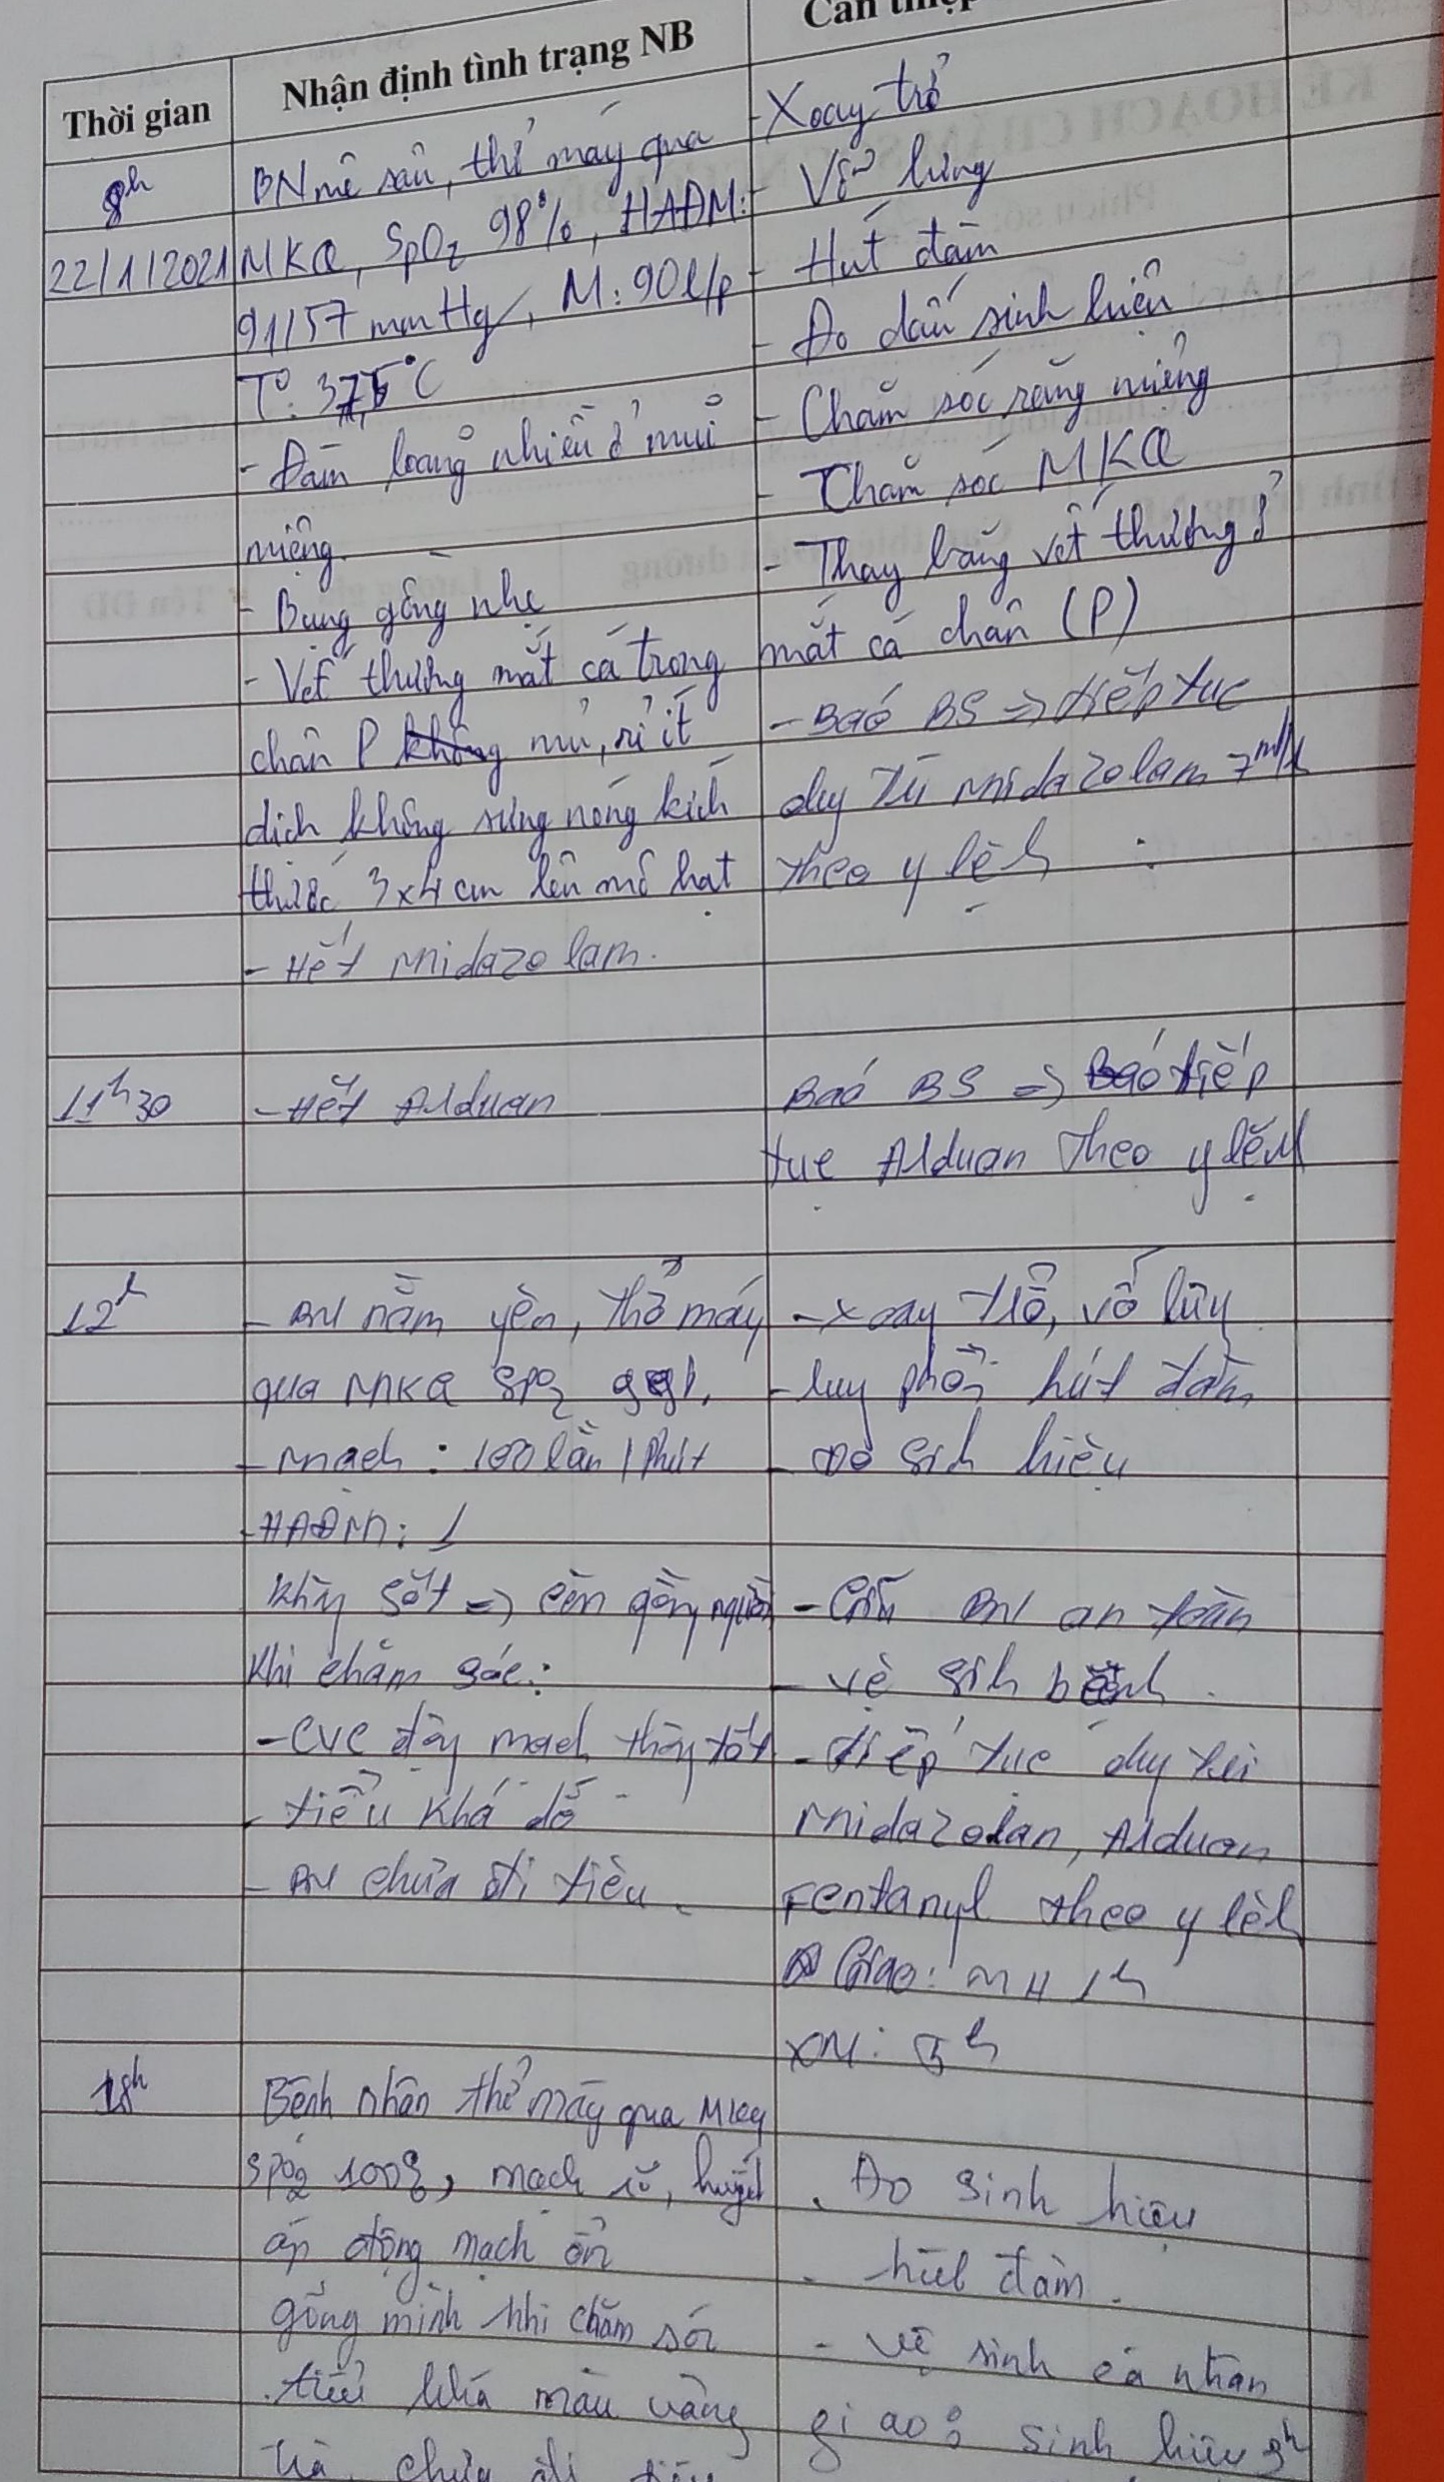 Thời gian
Nhận định tình trạng NB
8h
22/1/2021
BN mê sâu, thở máy qua
MKQ, SpO2 98%, HAĐM:
91/57 mmHg, M: 90l/p
T°: 37,5°C
- Đàm loãng nhiều ở mũi
miệng.
- Bụng gồng nhẹ
- Vết thương mắt cá trong
chân P không mủ, rỉ ít
dịch không sưng nóng kích
thước 3x4 cm lên mô hạt
- Hết Midazolam.
- Xoay trở
- Vỗ lưng
- Hút đàm
- Đo dấu sinh hiệu
- Chăm sóc răng miệng
- Chăm sóc MKQ
- Thay băng vết thương ở
mắt cá chân (P)
- Báo BS => tiếp tục
duy trì Midazolam 7ml/h
theo y lệnh
11h30
- Hết Alduan
Báo BS => Báo tiếp
tục Alduan theo y lệnh
12h
- BN nằm yên, thở máy
qua MKQ SpO2
- mạch: 100 lần / phút
- HAĐM:
không sốt => còn gồng người
khi chăm sóc:
- CVC đang mạch thông tốt
- tiểu khá
- BN chưa đi tiêu.
- Xoay trở, vỗ lưng
- hút đàm
- Đo sinh hiệu
- Giữ BN an toàn
- vệ sinh bệnh.
- tiếp tục duy trì
Midazolan, Alduan
Fentanyl theo y lệnh
Giao: MH 1h
XN: 5h
18h
Bệnh nhân thở máy qua MKQ
SpO2 100%, mạch rõ, huyết
áp động mạch ổn
gồng mình khi chăm sóc
. tiểu khá màu vàng
chưa đi tiêu
. Đo sinh hiệu
. hút đàm.
- Vệ sinh cá nhân
giao: sinh hiệu 3h